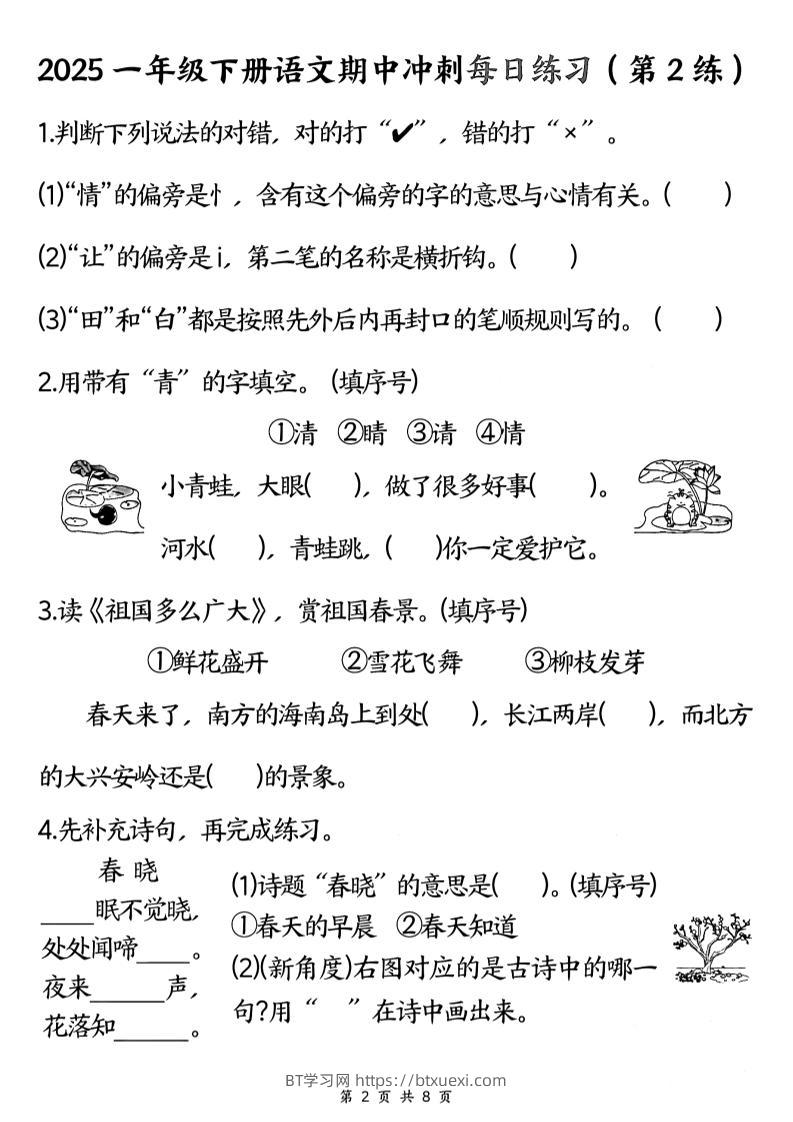 2025 一年级下册语文期中冲刺每日练习（第 2 练）
1.判断下列说法的对错，对的打“✔”，错的打“×”。
(1)“情”的偏旁是忄，含有这个偏旁的字的意思与心情有关。(　　)
(2)“让”的偏旁是 i，第二笔的名称是横折钩。(　　)
(3)“田”和“白”都是按照先外后内再封口的笔顺规则写的。(　　)
2.用带有“青”的字填空。(填序号)
①清　②晴　③请　④情
小青蛙，大眼(　　)，做了很多好事(　　)。
河水(　　)，青蛙跳，(　　)你一定爱护它。
3.读《祖国多么广大》，赏祖国春景。(填序号)
①鲜花盛开　②雪花飞舞　③柳枝发芽
春天来了，南方的海南岛上到处(　　)，长江两岸(　　)，而北方
的大兴安岭还是(　　)的景象。
4.先补充诗句，再完成练习。
春 晓
____眠不觉晓，
处处闻啼____。
夜来______声，
花落知______。
(1)诗题“春晓”的意思是(　　)。(填序号)
①春天的早晨　②春天知道
(2)(新角度)右图对应的是古诗中的哪一
句?用“　”在诗中画出来。
BT学习网 https://btxuexi.com
第 2 页 共 8 页